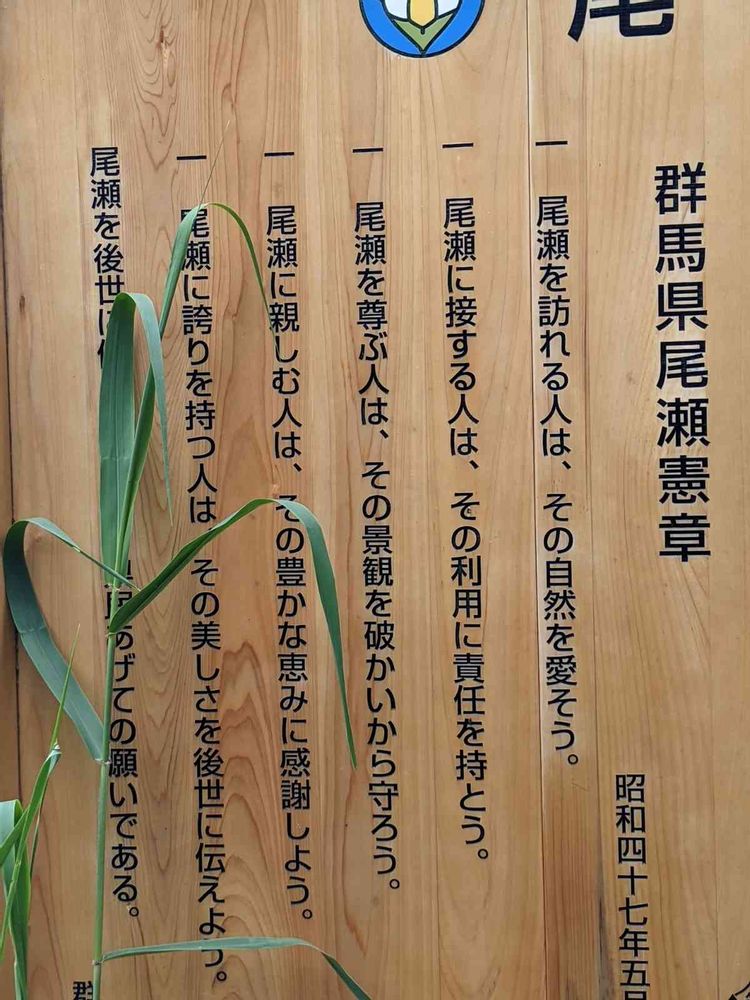 尾
群馬県尾瀬憲章
昭和四十七年五
一 尾瀬を訪れる人は、その自然を愛そう。
一 尾瀬に接する人は、その利用に責任を持とう。
一 尾瀬を尊ぶ人は、その景観を破かいから守ろう。
一 尾瀬に親しむ人は、その豊かな恵みに感謝しよう。
一 尾瀬に誇りを持つ人は、その美しさを後世に伝えよう。
尾瀬を後世に あげての願いである。
群